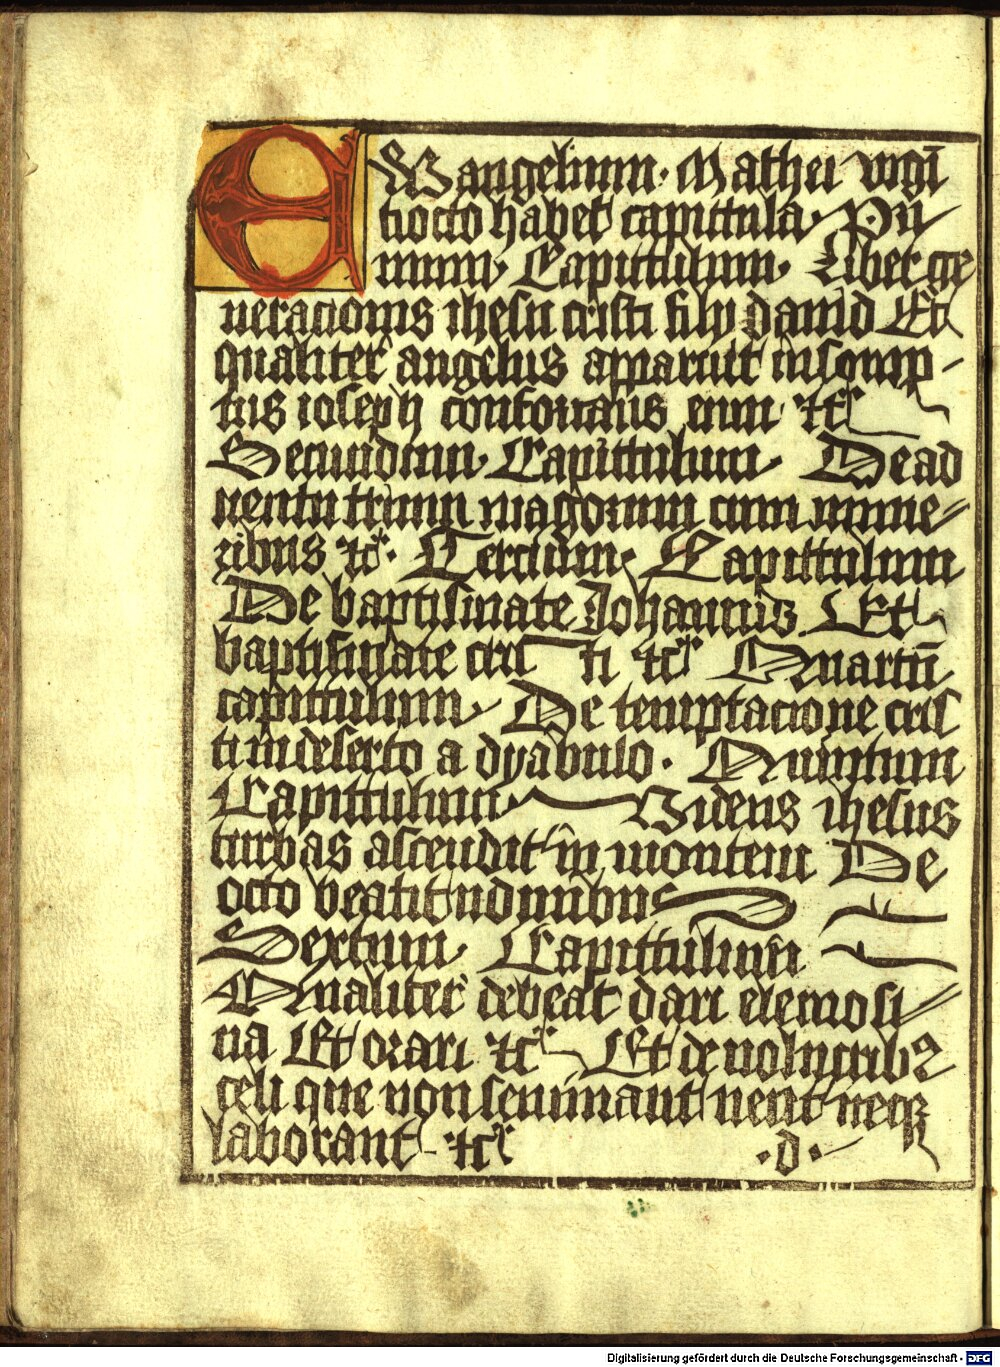 EWangelium. Mathei vigī
tiocto habet capittula. Pri
mum Capittulum. Liber ge
neracionis ihesu cristi filij dauid Et
qualiter angelus apparuit in somp-
nis ioseph confortans eum ⁊cͬ
Secundum Capittulum. De ad
uentu trium magorum cum mune-
ribus ⁊cͬ. Tercium. Capittulum
De baptismate Johannis Et
baptismate cris ti ⁊cͬ Quartū
capittulum De temptacione cris
ti in deserto a dyabulo. Quintum
Capittulum Videns ihesus
turbas ascendit in montem De
octo beatitudinibus
Sextum Capittulum
Qualiter debeat dari elemosi-
na Et orari ⁊cͬ Et de volucribꝫ
celi que non seminant nent neqꝫ
laborant ⁊cͬ .d.
Digitalisierung gefördert durch die Deutsche Forschungsgemeinschaft - DFG